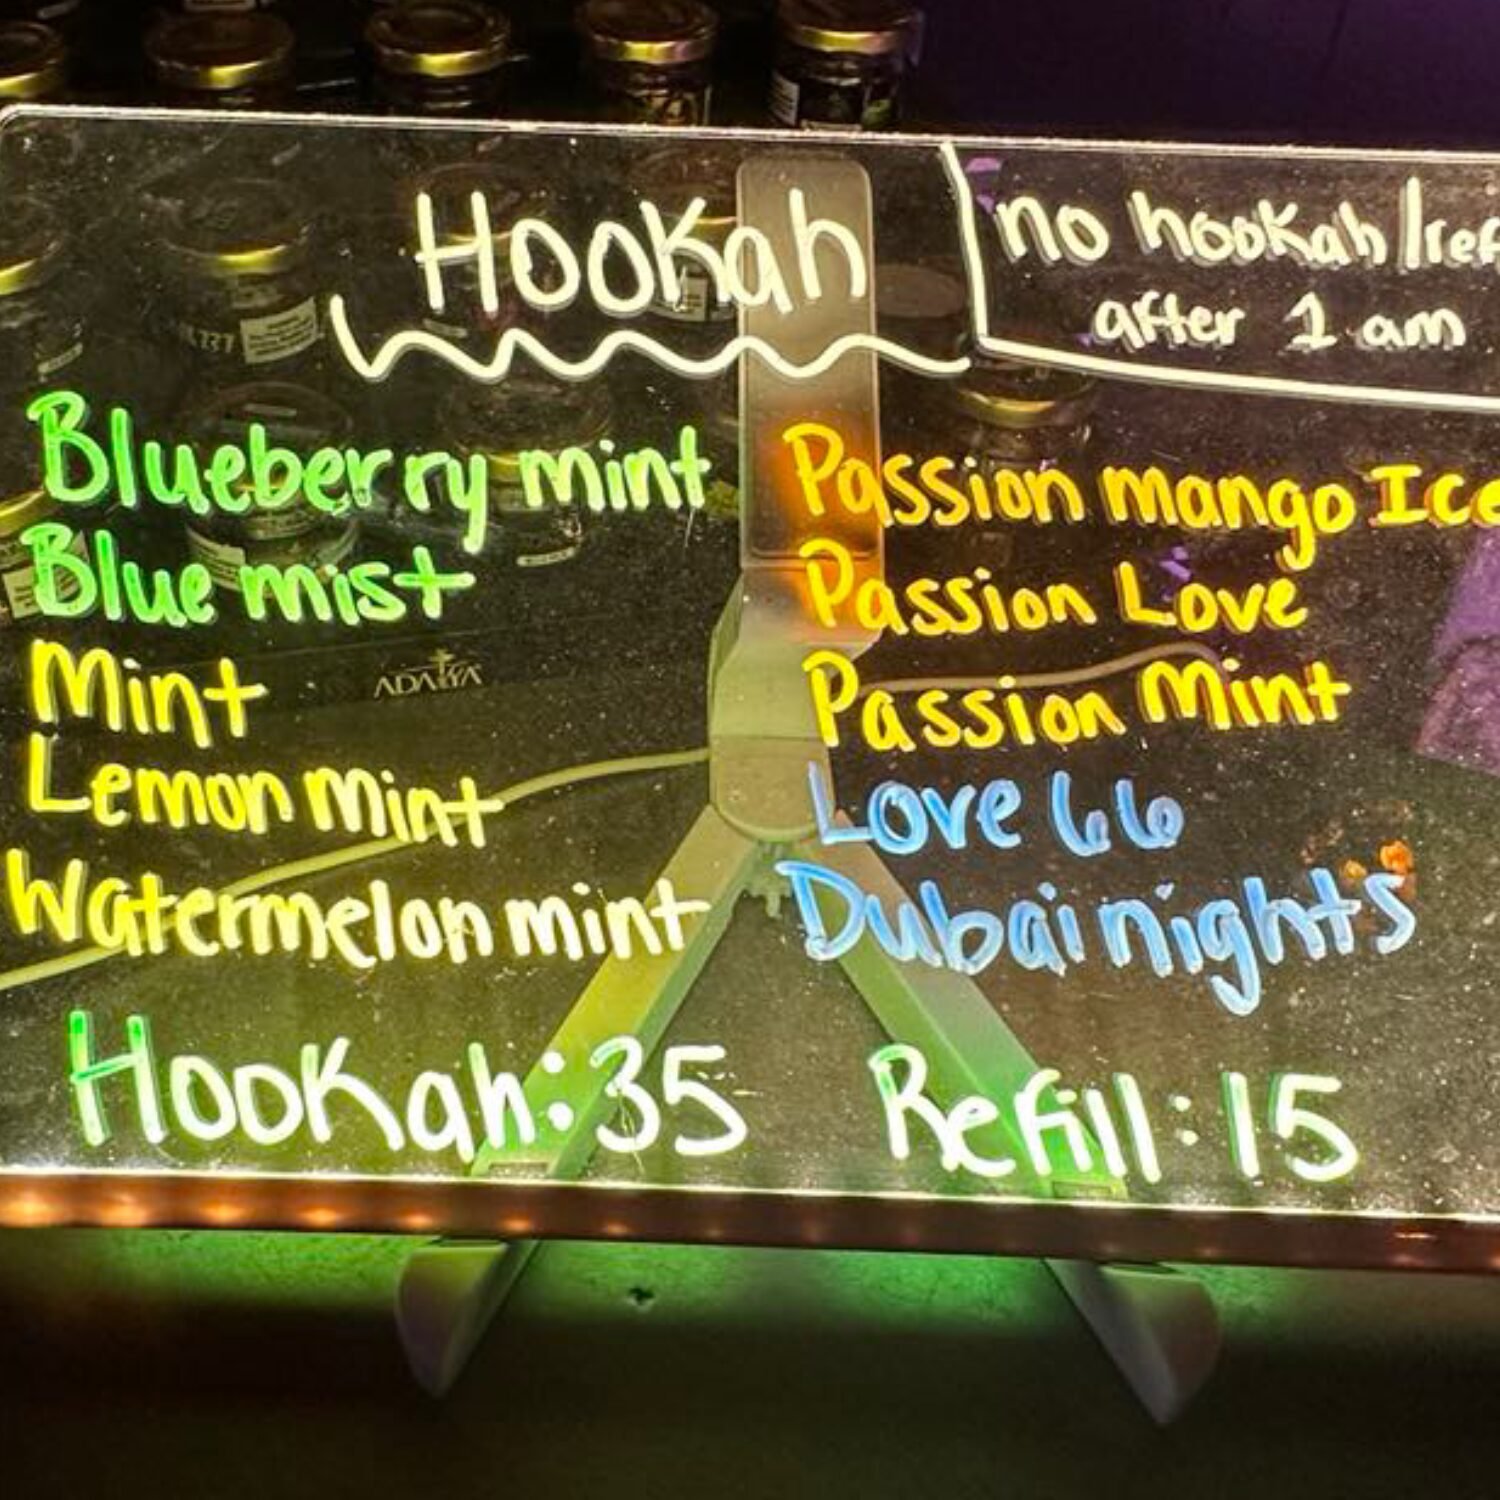 Hookah
no hookah/ref
after 1 am
Blueberry mint
Blue mist
Mint
Lemon mint
Watermelon mint
Passion mango Ice
Passion Love
Passion Mint
Love 66
Dubai nights
Hookah: 35
Refill: 15
ADALYA